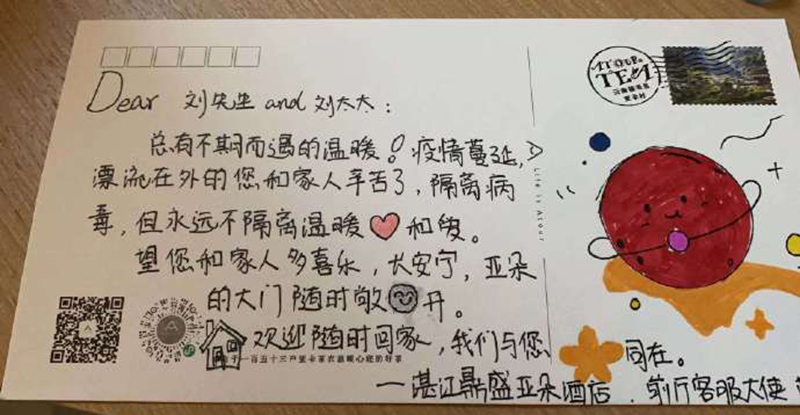 Dear 刘先生 and 刘太太:
总有不期而遇的温暖！疫情蔓延,
漂流在外的您和家人辛苦了,隔离病
毒,但永远不隔离温暖❤和
望您和家人多喜乐,长安宁,亚朵
的大门随时敞开。
欢迎随时回家,我们与您同在。
—湛江鼎盛亚朵酒店.前厅客服大使
Life is Atour
TEA